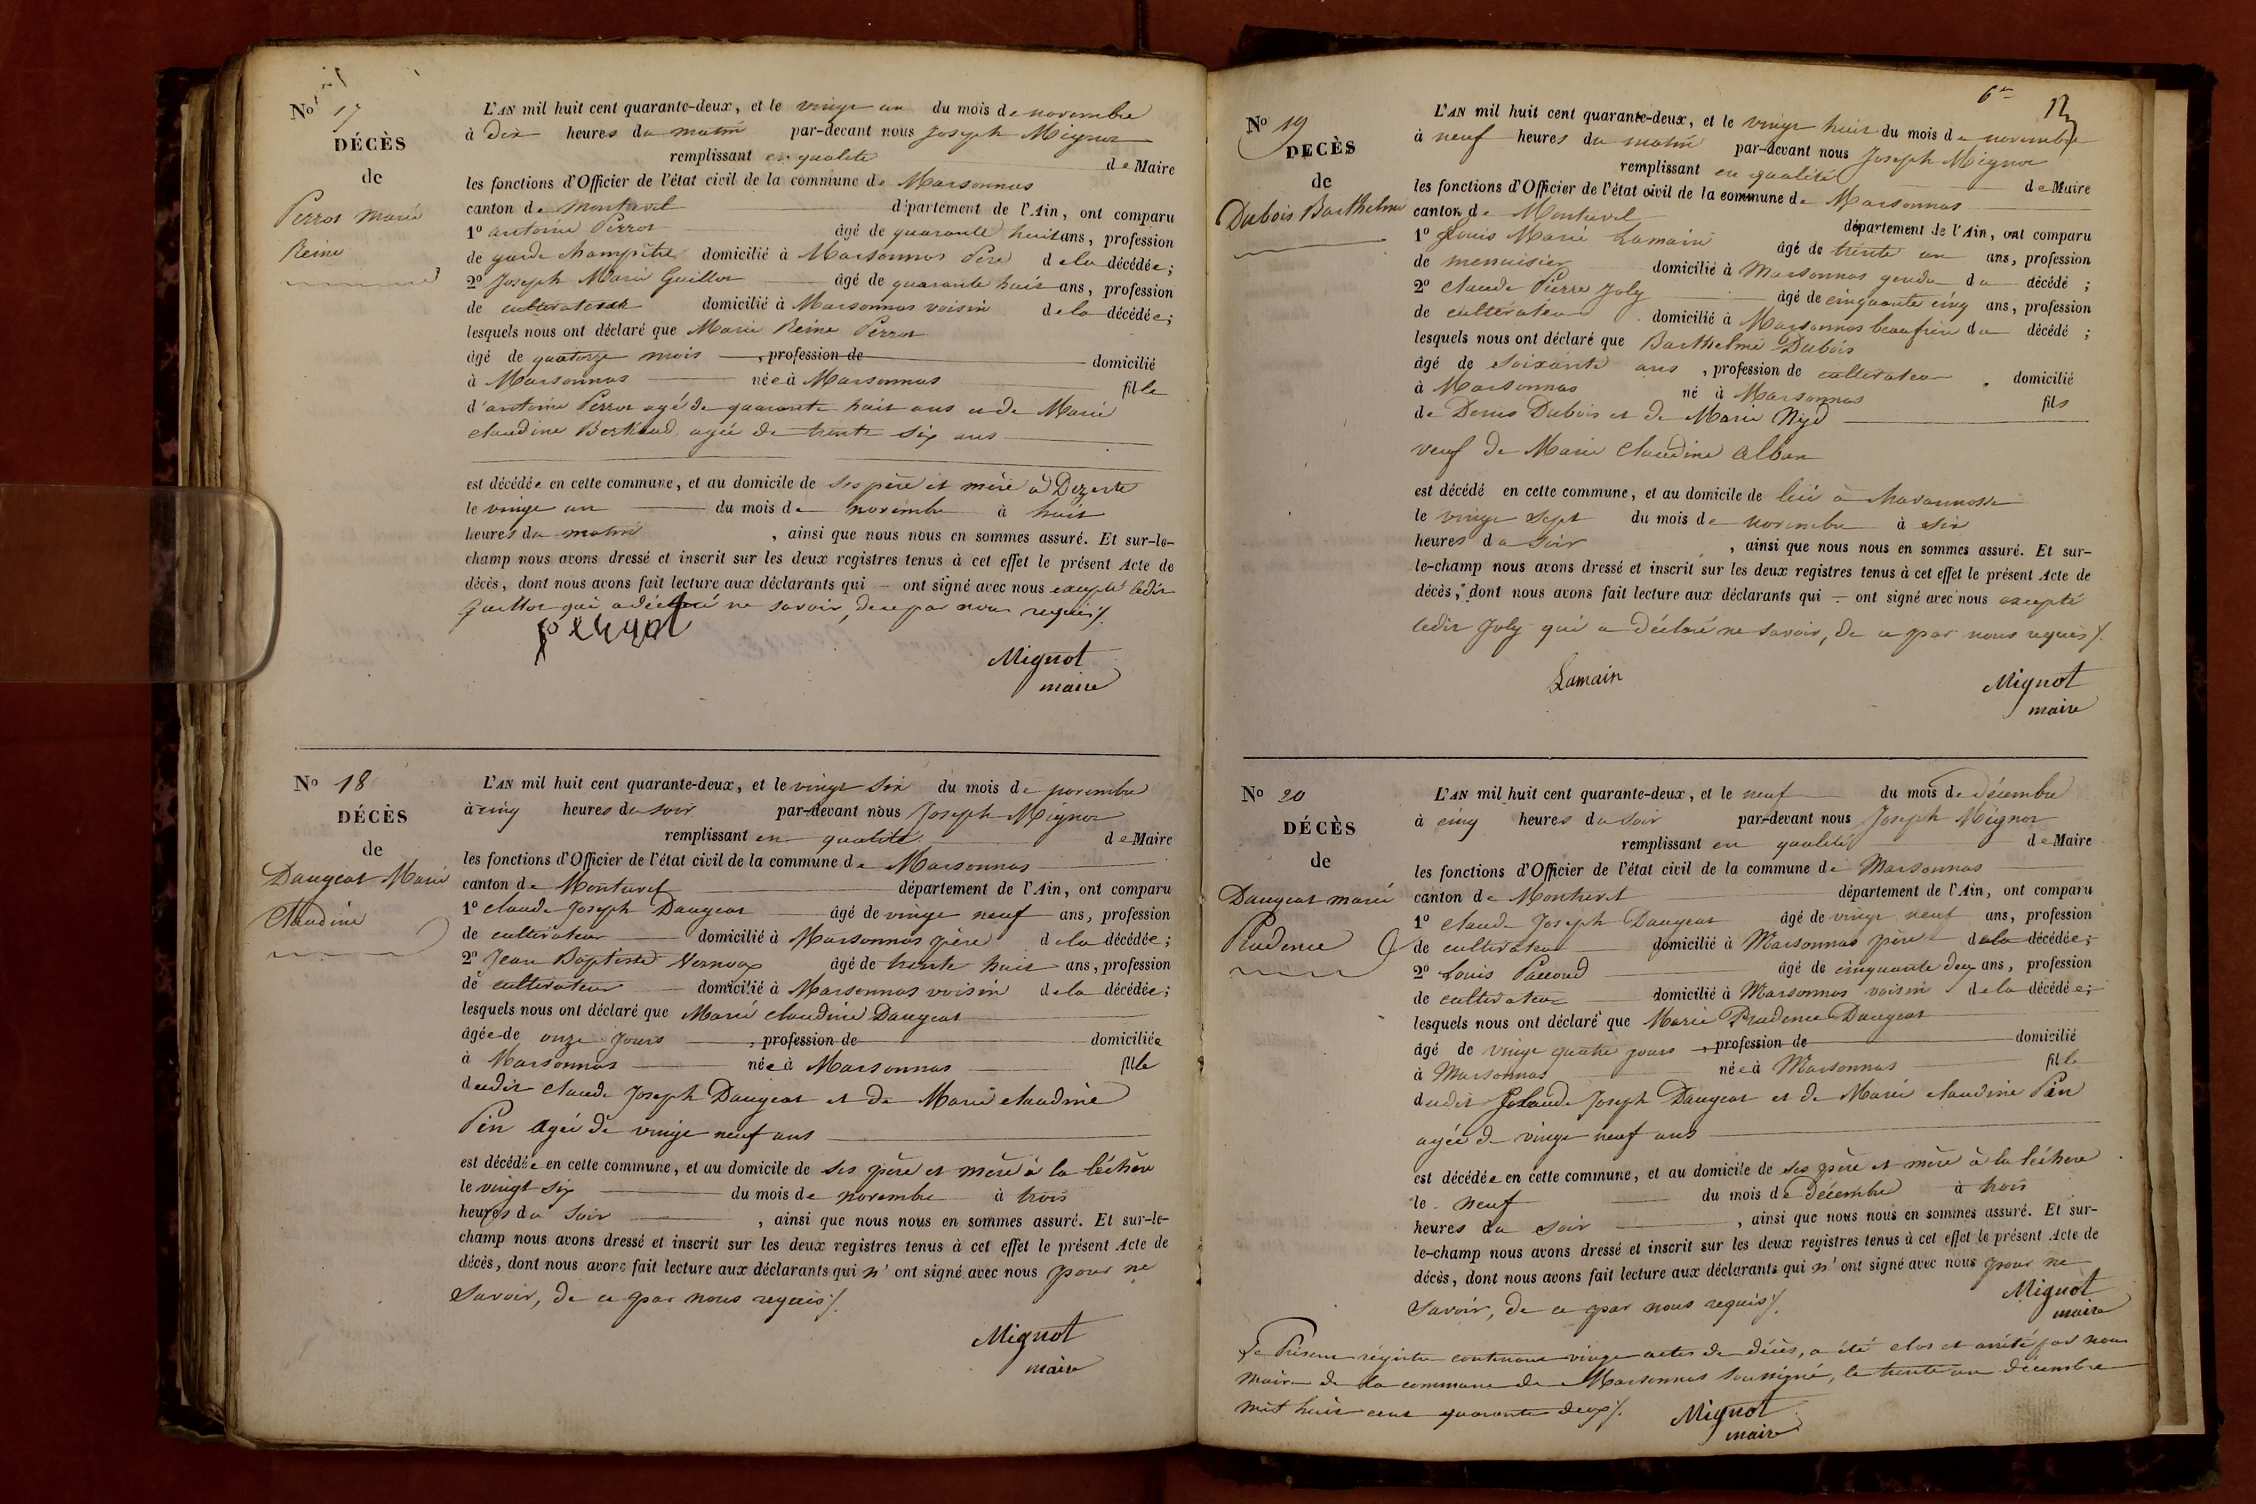 No 17
DÉCÈS
de
Perrot Marie
Reine
L'AN mil huit cent quarante-deux, et le vingt un du mois de novembre
à dix heures du matin par-devant nous Joseph Mignot
remplissant en qualité de Maire
les fonctions d'Officier de l'état civil de la commune de Marsonnas
canton de Montrevel département de l'Ain, ont comparu
1o antoine Perrot âgé de quarante huit ans, profession
de garde champêtre domicilié à Marsonnas Père de la décédée;
2o Joseph Marie Guillot âgé de quarante huit ans, profession
de cultivateur domicilié à Marsonnas voisin de la décédée;
lesquels nous ont déclaré que Marie Reine Perrot
âgé de quatorze mois , profession de domicilié
à Marsonnas née à Marsonnas fille
d'antoine Perrot agé de quarante huit ans et de Marie
claudine Berthaud agée de trente six ans
est décédée en cette commune, et au domicile de ses père et mère à Dezerte
le vingt un du mois de novembre à huit
heures du matin , ainsi que nous nous en sommes assuré. Et sur-le-
champ nous avons dressé et inscrit sur les deux registres tenus à cet effet le présent Acte de
décès, dont nous avons fait lecture aux déclarants qui ont signé avec nous excepté ledit
Guillot qui a déclaré ne savoir, de ce par nous requis
perrot
Mignot
maire
No 18
DÉCÈS
de
Daugeat Marie
Claudine
L'AN mil huit cent quarante-deux, et le vingt six du mois de novembre
à cinq heures du soir par-devant nous Joseph Mignot
remplissant en qualité de Maire
les fonctions d'Officier de l'état civil de la commune de Marsonnas
canton de Montrevel département de l'Ain, ont comparu
1o claude Joseph Daugeat âgé de vingt neuf ans, profession
de cultivateur domicilié à Marsonnas père de la décédée;
2o Jean Baptiste Vernoux âgé de trente huit ans, profession
de cultivateur domicilié à Marsonnas voisin de la décédée;
lesquels nous ont déclaré que Marie claudine Daugeat
âgée de onze jours , profession de domiciliée
à Marsonnas née à Marsonnas fille
dudit claude Joseph Daugeat et de Marie claudine
Pin agée de vingt neuf ans
est décédée en cette commune, et au domicile de ses père et mère à la léchère
le vingt six du mois de novembre à trois
heures du soir , ainsi que nous nous en sommes assuré. Et sur-le-
champ nous avons dressé et inscrit sur les deux registres tenus à cet effet le présent Acte de
décès, dont nous avons fait lecture aux déclarants qui n'ont signé avec nous pour ne
savoir, de ce par nous requis
Mignot
maire
6e
No 19
DECÈS
de
Dubois Barthelmi
L'AN mil huit cent quarante-deux, et le vingt huit du mois de novembre
à neuf heures du matin par-devant nous Joseph Mignot
remplissant en qualité de Maire
les fonctions d'Officier de l'état civil de la commune de Marsonnas
canton de Montrevel département de l'Ain, ont comparu
1o Louis Marie Lamain âgé de trente un ans, profession
de menuisier domicilié à Marsonnas gendre du décédé ;
2o claude Pierre Joly âgé de cinquante cinq ans, profession
de cultivateur domicilié à Marsonnas beaufrère du décédé ;
lesquels nous ont déclaré que Barthelmi Dubois
âgé de soixante ans , profession de cultivateur domicilié
à Marsonnas né à Marsonnas fils
de Denis Dubois et de Marie Nyd
veuf de Marie Claudine alban
est décédé en cette commune, et au domicile de lui à
le vingt sept du mois de novembre à six
heures du soir , ainsi que nous nous en sommes assuré. Et sur-
le-champ nous avons dressé et inscrit sur les deux registres tenus à cet effet le présent Acte de
décès, dont nous avons fait lecture aux déclarants qui ont signé avec nous excepté
ledit Joly qui a déclaré ne savoir, de ce par nous requis
Lamain
Mignot
maire
No 20
DÉCÈS
de
Daugeat marie
Prudence
L'AN mil huit cent quarante-deux, et le neuf du mois de décembre
à cinq heures du soir par-devant nous Joseph Mignot
remplissant en qualité de Maire
les fonctions d'Officier de l'état civil de la commune de Marsonnas
canton de Montrevel département de l'Ain, ont comparu
1o claude Joseph Daugeat âgé de vingt neuf ans, profession
de cultivateur domicilié à Marsonnas père de la décédée;
2o Louis Paccoud âgé de cinquante deux ans, profession
de cultivateur domicilié à Marsonnas voisin de la décédée;
lesquels nous ont déclaré que Marie Prudence Daugeat
âgé de vingt quatre jours , profession de domicilié
à Marsonnas née à Marsonnas fille
dudit Claude Joseph Daugeat et de Marie claudine Pin
agée de vingt neuf ans
est décédée en cette commune, et au domicile de ses père et mère à la léchere
le neuf du mois de décembre à trois
heures du soir , ainsi que nous nous en sommes assuré. Et sur-
le-champ nous avons dressé et inscrit sur les deux registres tenus à cet effet le présent Acte de
décès, dont nous avons fait lecture aux déclarants qui n'ont signé avec nous pour ne
savoir, de ce par nous requis
Mignot
maire
Le Présent régistre contenant vingt actes de décès, a été clos et arrêté par nous
Maire de la commune de Marsonnas soussigné, le trente un décembre
mil huit cent quarante deux
Mignot
maire